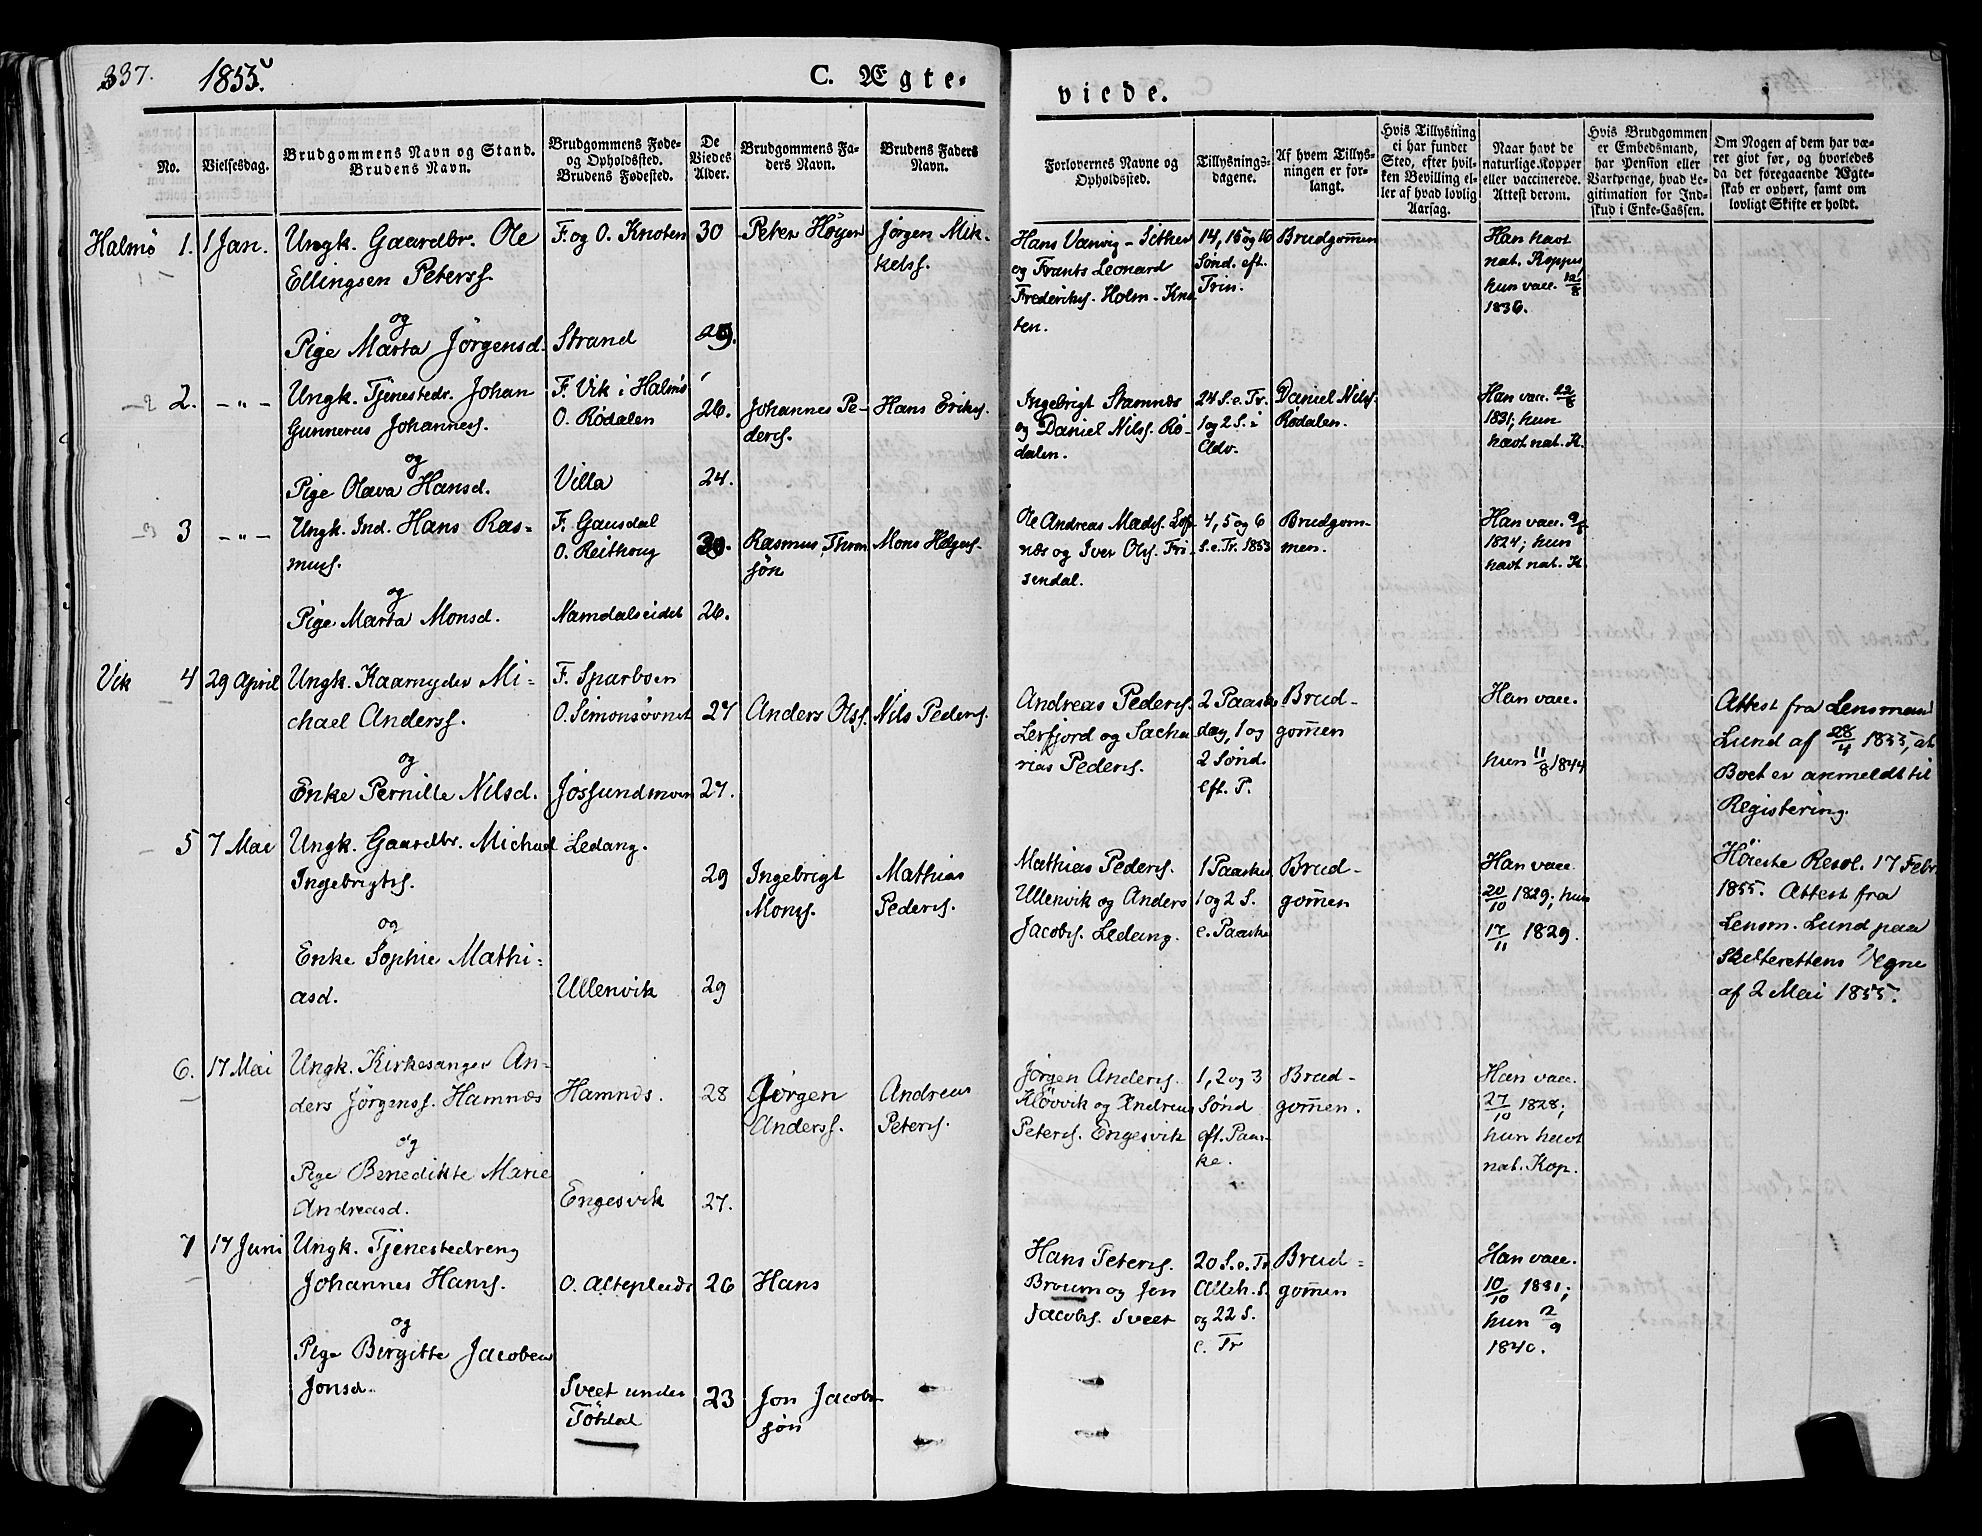 337.
1855.
C. Ægte-
viede.
No.
Vielsesdag.
Brudgommens Navn og Stand.
Brudens Navn.
Brudgommens Føde-
og Opholdssted.
Brudens Fødested.
De
Viedes
Alder.
Brudgommens Fa-
ders Navn.
Brudens Faders
Navn.
Forlovernes Navne og
Opholdssted.
Tillysnings-
dagene.
Af hvem Tillys-
ningen er for-
langt.
Hvis Tillysning
ei har fundet
Sted, efter hvil-
ken Bevilling el-
ler af hvad lovlig
Aarsag.
Naar havt de
naturlige Kopper
eller vaccinerede.
Attest derom.
Hvis Brudgommen
er Embedsmand,
har Pension eller
Vartpenge, hvad Le-
gitimation for Ind-
skud i Enke-Cassen.
Om Nogen af dem har væ-
ret givt før, og hvorledes
da det foregaaende Ægte-
skab er ophørt, samt om
lovligt Skifte er holdt.
Halmö 1. 1 Jan.
Ungk. Gaardbr. Ole
Ellingsen Peterss.
og
Pige Marta Jörgensd.
F. og O. Knoten
Strand
30
29.
Peter Höyer
Jörgen Mik-
kelss.
Hans Vanvig - Sither
og Frants Leonard
Frederiks. Holm - Kno
ten.
14, 15 og 16
Sönd. eft.
Trin.
Brudgommen
Han havt
nat. Kopper
hun vacc. 12/8
1836.
2. - " -
Ungk. Tjenestedr. Johan
Gunnerus Johanness.
og
Pige Olava Hansd.
F. Vik i Halmö
O. Rödalen
Villa
26.
24.
Johannes Pe-
ders.
Hans Eriks.
Ingebrigt Stamnes
og Daniel Nilss. Rö-
dalen.
24 S. e. Tr.
1 og 2 S. i
Adv.
Daniel Nilss.
Rödalen.
Han vacc. 22/8
1831; hun
havt nat. K.
3 - " -
Ungk. Ind. Hans Ras-
muss.
og
Pige Marta Monsd.
F. Gausdal
O. Reithoug
Namdalseidet
30.
26.
Rasmus Thron
sön
Mons Holgers.
Ole Andreas Mads. Lof-
næs og Iver Ols. Fri-
sendal.
4, 5 og 6
S. e. Tr. 1853
Brudgom-
men.
Han vacc.
1824; hun
havt nat. K.
Vik 4 29 April
Ungk. Kaarnyder Mi-
chael Anderss.
og
Enke Pernille Nilsd.
F. Sparboen
O. Simonsövnet
Jössundmoen
27
27.
Anders Olss.
Nils Peders.
Andreas Peders.
Lerfjord og Sacha
rias Peders.
2 Paaske
dag, 1 og
2 Sönd.
eft. P.
Brud-
gommen
Han vacc.
hun 11/8 1844
Attest fra Lensmand
Lund af 28/4 1855, at
Boet er anmeldt til
Registering.
5 7 Mai
Ungk. Gaardbr. Michael
Ingebrigts.
og
Enke Sophie Mathi-
asd.
Ledang.
Ullenvik
29
29
Ingebrigt
Monss.
Mathias
Peders.
Mathias Peders.
Ullenvik og Anders
Jacobs. Ledang.
1 Paaske
1 og 2 S.
e. Paaske
Brud-
gommen
Han vacc.
20/10 1829; hun
17/11 1829.
Höieste Resol. 17 Febr.
1855. Attest fra
Lensm. Lund paa
Skifterettens Vegne
af 2 Mai 1855.
6. 17 Mai
Ungk. Kirkesanger An-
ders Jörgenss. Hamnes
og
Pige Benedikte Marie
Andreasd.
Hamnes.
Engesvik
28
27.
Jörgen
Anderss.
Andreas
Peters.
Jörgen Anders.
Klövvik og Andreas
Peters. Engesvik
1, 2 og 3
Sönd
eft. Paas-
ke.
Brud-
gommen.
Han vacc.
27/10 1828;
hun havt
nat. Kop.
7 17 Juni
Ungk. Tjenestedreng
Johannes Hanss.
og
Pige Birgitte Jacobea
Jonsd.
O. Altepluds
Sveet under
Tötdal
26
23
Hans
Jon Jacob-
sön
Hans Peters.
Broum og Jon
Jacobs. Sveet
20 S. e. Tr
Alleh. S.
og 22 S.
e. Tr
Brud-
gommen
Han vacc.
10/10 1831;
hun 2/9
1840.